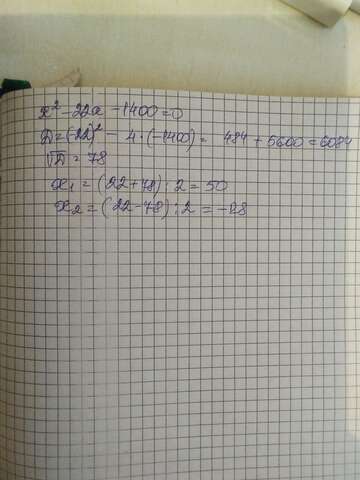 x² - 22x - 1400 = 0
D = (-22)² - 4 · (-1400) = 484 + 5600 = 6084
√D = 78
x₁ = (22 + 78) : 2 = 50
x₂ = (22 - 78) : 2 = -28